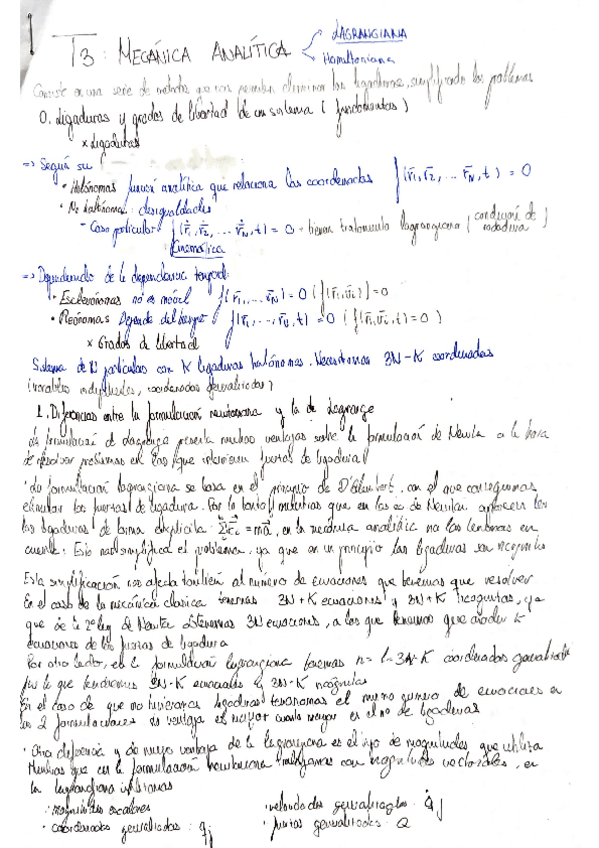 T3: MECÁNICA ANALÍTICA
LAGRANGIANA
Hamiltoniana
Consiste en una serie de métodos que nos permiten eliminar las ligaduras, simplificando los problemas
0. Ligaduras y grados de libertad de un sistema (fundamentos)
× Ligaduras
=> Según su
· Holónomas función analítica que relaciona las coordenadas f(r̄1, r̄2, ... r̄N, t) = 0
· No holónomas: desigualdades
- Caso particular f(ṙ1, ṙ2, ... ṙN, t) = 0 - tienen tratamiento lagrangiano (condición de rodadura)
Cinemática
=> Dependiendo de la dependencia temporal:
· Esclerónomas no es móvil f(r̄1, ... r̄N) = 0 (f(r̄1, r̄2)) = 0
· Reónomas Depende del tiempo f(r̄1, ..., r̄N, t) = 0 (f(r̄1, r̄2, t) = 0)
× Grados de libertad
Sistema de N partículas con K ligaduras holónomas. Necesitamos 3N-K coordenadas
(variables independientes, coordenadas generalizadas)
1. Diferencias entre la formulación newtoniana y la de Lagrange
La formulación de Lagrange presenta muchas ventajas sobre la formulación de Newton a la hora
de resolver problemas en los que intervienen fuerzas de ligadura
· La formulación lagrangiana se basa en el principio de D'Alembert, con el que conseguimos
eliminar las fuerzas de ligadura. Por lo tanto, mientras que en las ec de Newton aparecen
las ligaduras de forma explícita = m, en la mecánica analítica no las tenemos en
cuenta. Esto nos simplifica el problema, ya que en un principio las ligaduras son incógnitas
Esta simplificación nos afecta también al número de ecuaciones que tenemos que resolver
En el caso de la mecánica clásica tenemos 3N+K ecuaciones y 3N+K incógnitas, ya
que de la 2ª ley de Newton obtenemos 3N ecuaciones, a las que tenemos que añadir K
ecuaciones de las fuerzas de ligadura
Por otro lado, en la formulación lagrangiana tenemos 3N-K coordenadas generalizadas
por lo que tendremos 3N-K ecuaciones y 3N-K incógnitas
En el caso de que no tuviéramos ligaduras tendríamos el mismo número de ecuaciones en
las 2 formulaciones. La ventaja es mayor cuanto mayor es el nº de ligaduras
· Otra diferencia y de nuevo ventaja de la lagrangiana es el tipo de magnitudes que utiliza
Mientras que en la formulación newtoniana trabajamos con magnitudes vectoriales, en
la lagrangiana utilizamos
· magnitudes escalares
· velocidades generalizadas: q̇j
· coordenadas generalizadas: qj
· fuerzas generalizadas: Q